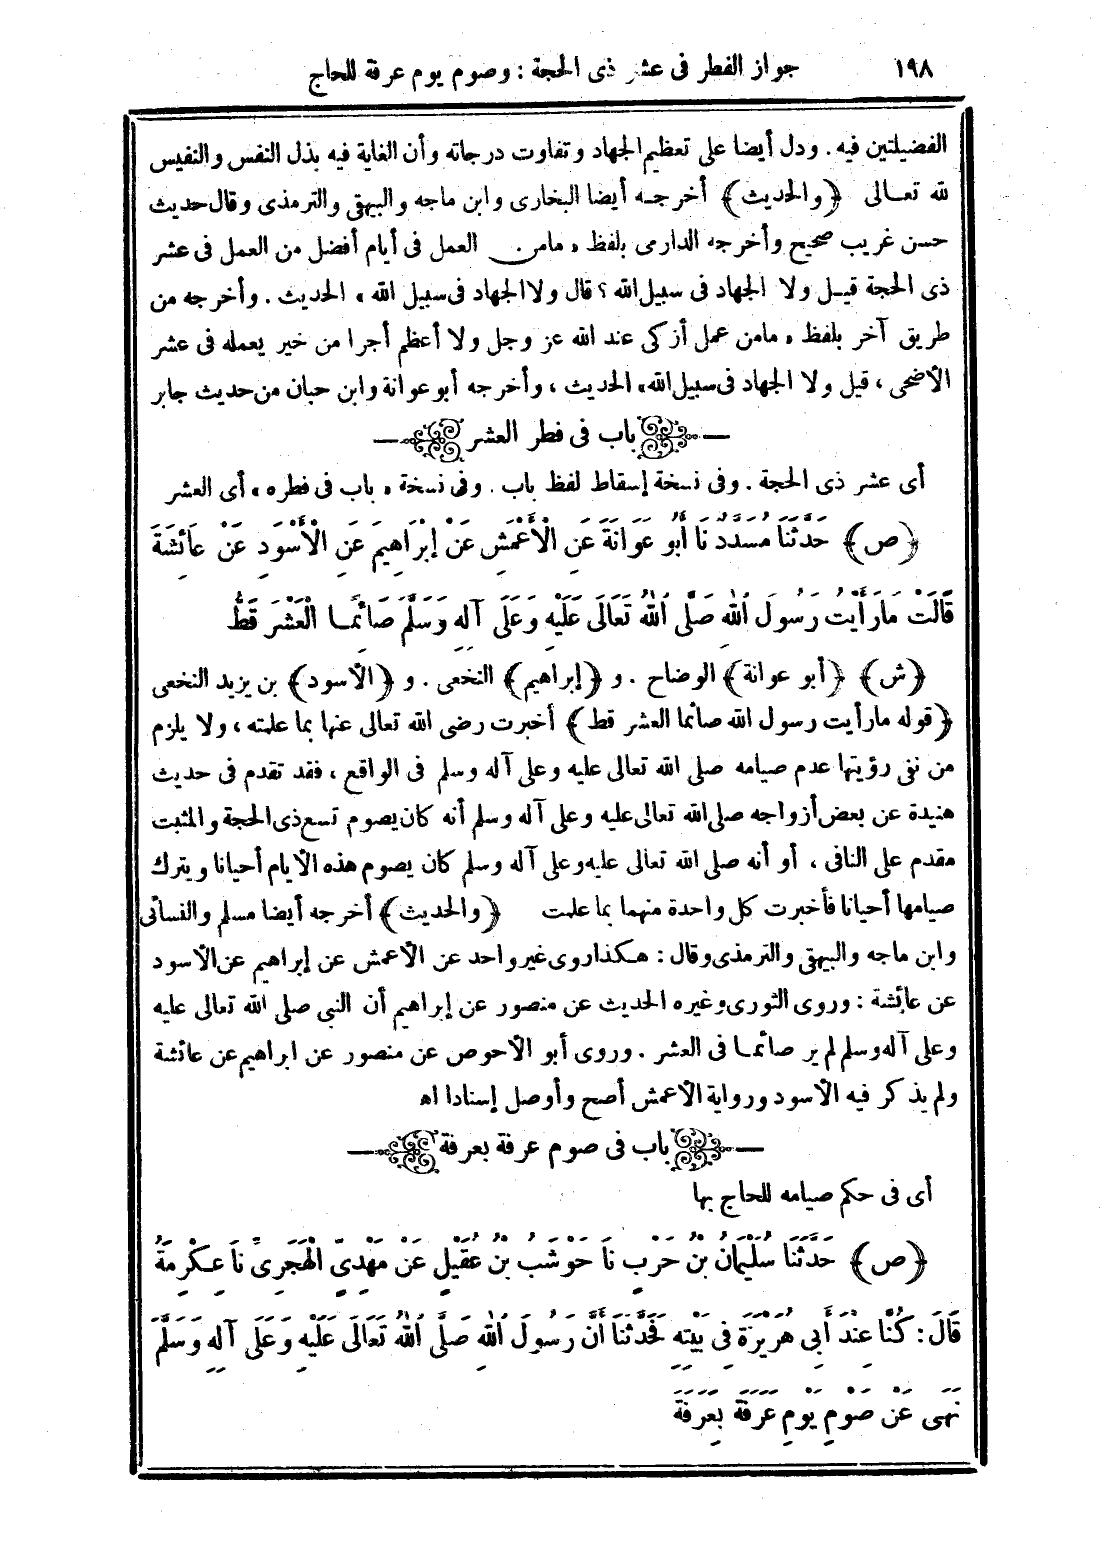 ١٩٨ جواز الفطر فى عشر ذى الحجة : وصوم يوم عرفة للحاج
الفضيلتين فيه . ودل أيضا على تعظيم الجهاد وتفاوت درجاته وأن الغاية فيه بذل النفس والنفيس
لله تعالى ﴿والحديث﴾ أخرجه أيضا البخارى وابن ماجه والبيهقى والترمذى وقال حديث
حسن غريب صحيح وأخرجه الدارمى بلفظ «مامن العمل فى أيام أفضل من العمل فى عشر
ذى الحجة قيل ولا الجهاد فى سبيل الله ؟ قال ولا الجهاد فى سبيل الله» الحديث . وأخرجه من
طريق آخر بلفظ «مامن عمل أزكى عند الله عز وجل ولا أعظم أجرا من خير يعمله فى عشر
الأضحى ، قيل ولا الجهاد فى سبيل الله» الحديث ، وأخرجه أبو عوانة وابن حبان من حديث جابر
باب فى فطر العشر
أى عشر ذى الحجة . وفى نسخة إسقاط لفظ باب . وفى نسخة «باب فى فطره» أى العشر
﴿ص﴾ حَدَّثَنَا مُسَدَّدٌ نَا أَبُو عَوَانَةَ عَنِ الْأَعْمَشِ عَنْ إِبْرَاهِيمَ عَنِ الْأَسْوَدِ عَنْ عَائِشَةَ
قَالَتْ مَارَأَيْتُ رَسُولَ اللهِ صَلَّى اللهُ تَعَالَى عَلَيْهِ وَعَلَى آلِهِ وَسَلَّمَ صَائِمًا الْعَشْرَ قَطُّ
﴿ش﴾ ﴿أبو عوانة﴾ الوضاح . و ﴿إبراهيم﴾ النخعى . و ﴿الأسود﴾ بن يزيد النخعى
﴿قوله مارأيت رسول الله صائما العشر قط﴾ أخبرت رضى الله تعالى عنها بما علمته ، ولا يلزم
من نفى رؤيتها عدم صيامه صلى الله تعالى عليه وعلى آله وسلم فى الواقع ، فقد تقدم فى حديث
هنيدة عن بعض أزواجه صلى الله تعالى عليه وعلى آله وسلم أنه كان يصوم تسع ذى الحجة والمثبت
مقدم على النافى ، أو أنه صلى الله تعالى عليه وعلى آله وسلم كان يصوم هذه الأيام أحيانا ويترك
صيامها أحيانا فأخبرت كل واحدة منهما بما علمت ﴿والحديث﴾ أخرجه أيضا مسلم والنسائى
وابن ماجه والبيهقى والترمذى وقال : هكذا روى غير واحد عن الأعمش عن إبراهيم عن الأسود
عن عائشة : وروى الثورى وغيره الحديث عن منصور عن إبراهيم أن النبى صلى الله تعالى عليه
وعلى آله وسلم لم ير صائما فى العشر . وروى أبو الأحوص عن منصور عن ابراهيم عن عائشة
ولم يذكر فيه الأسود ورواية الأعمش أصح وأوصل إسنادا اه
باب فى صوم عرفة بعرفة
أى فى حكم صيامه للحاج بها
﴿ص﴾ حَدَّثَنَا سُلَيْمَانُ بْنُ حَرْبٍ نَا حَوْشَبُ بْنُ عُقَيْلٍ عَنْ مَهْدِيٍّ الْهَجَرِىِّ نَا عِكْرِمَةُ
قَالَ : كُنَّا عِنْدَ أَبِي هُرَيْرَةَ فِي بَيْتِهِ فَحَدَّثَنَا أَنَّ رَسُولَ اللهِ صَلَّى اللهُ تَعَالَى عَلَيْهِ وَعَلَى آلِهِ وَسَلَّمَ
نَهَى عَنْ صَوْمِ يَوْمِ عَرَفَةَ بِعَرَفَةَ